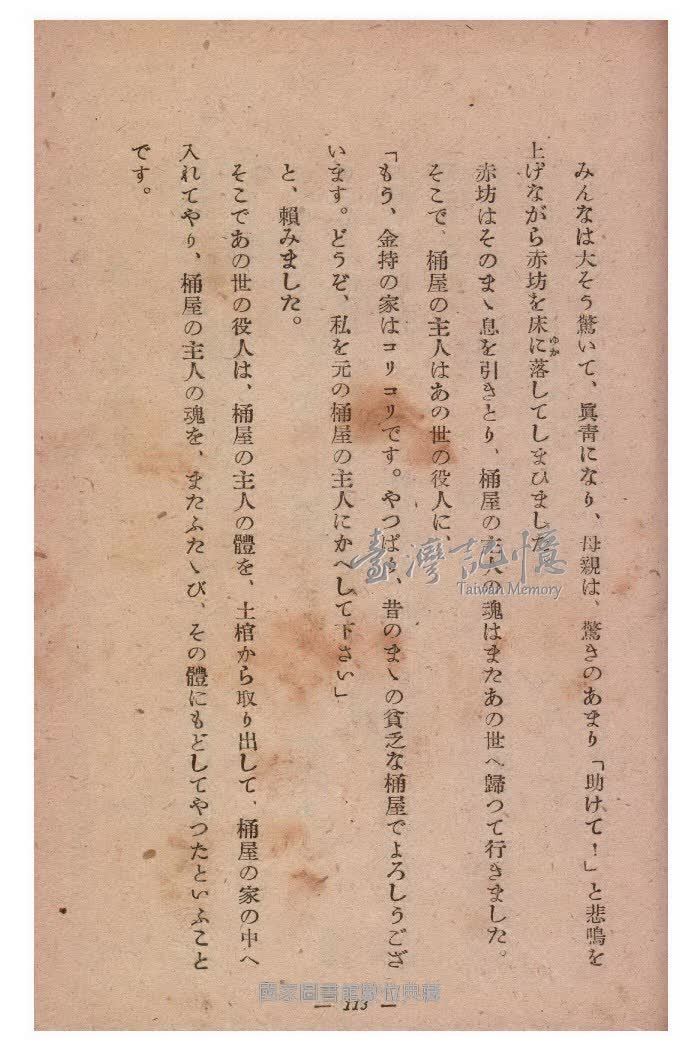 みんなは大そう驚いて、眞靑になり、母親は、驚きのあまり「助けて！」と悲鳴を
上げながら赤坊を床に落してしまひました
ゆか
赤坊はそのまゝ息を引きとり、桶屋の主人の魂はまたあの世へ歸つて行きました。
そこで、桶屋の主人はあの世の役人に、
「もう、金持の家はコリコリです。やつぱり、昔のまゝの貧乏な桶屋でよろしうござ
います。どうぞ、私を元の桶屋の主人にかへして下さい」
と、賴みました。
そこであの世の役人は、桶屋の主人の體を、土棺から取り出して、桶屋の家の中へ
入れてやり、桶屋の主人の魂を、またふたゝび、その體にもどしてやつたといふこと
です。
臺灣記憶
Taiwan Memory
國家圖書館數位典藏
— 113 —